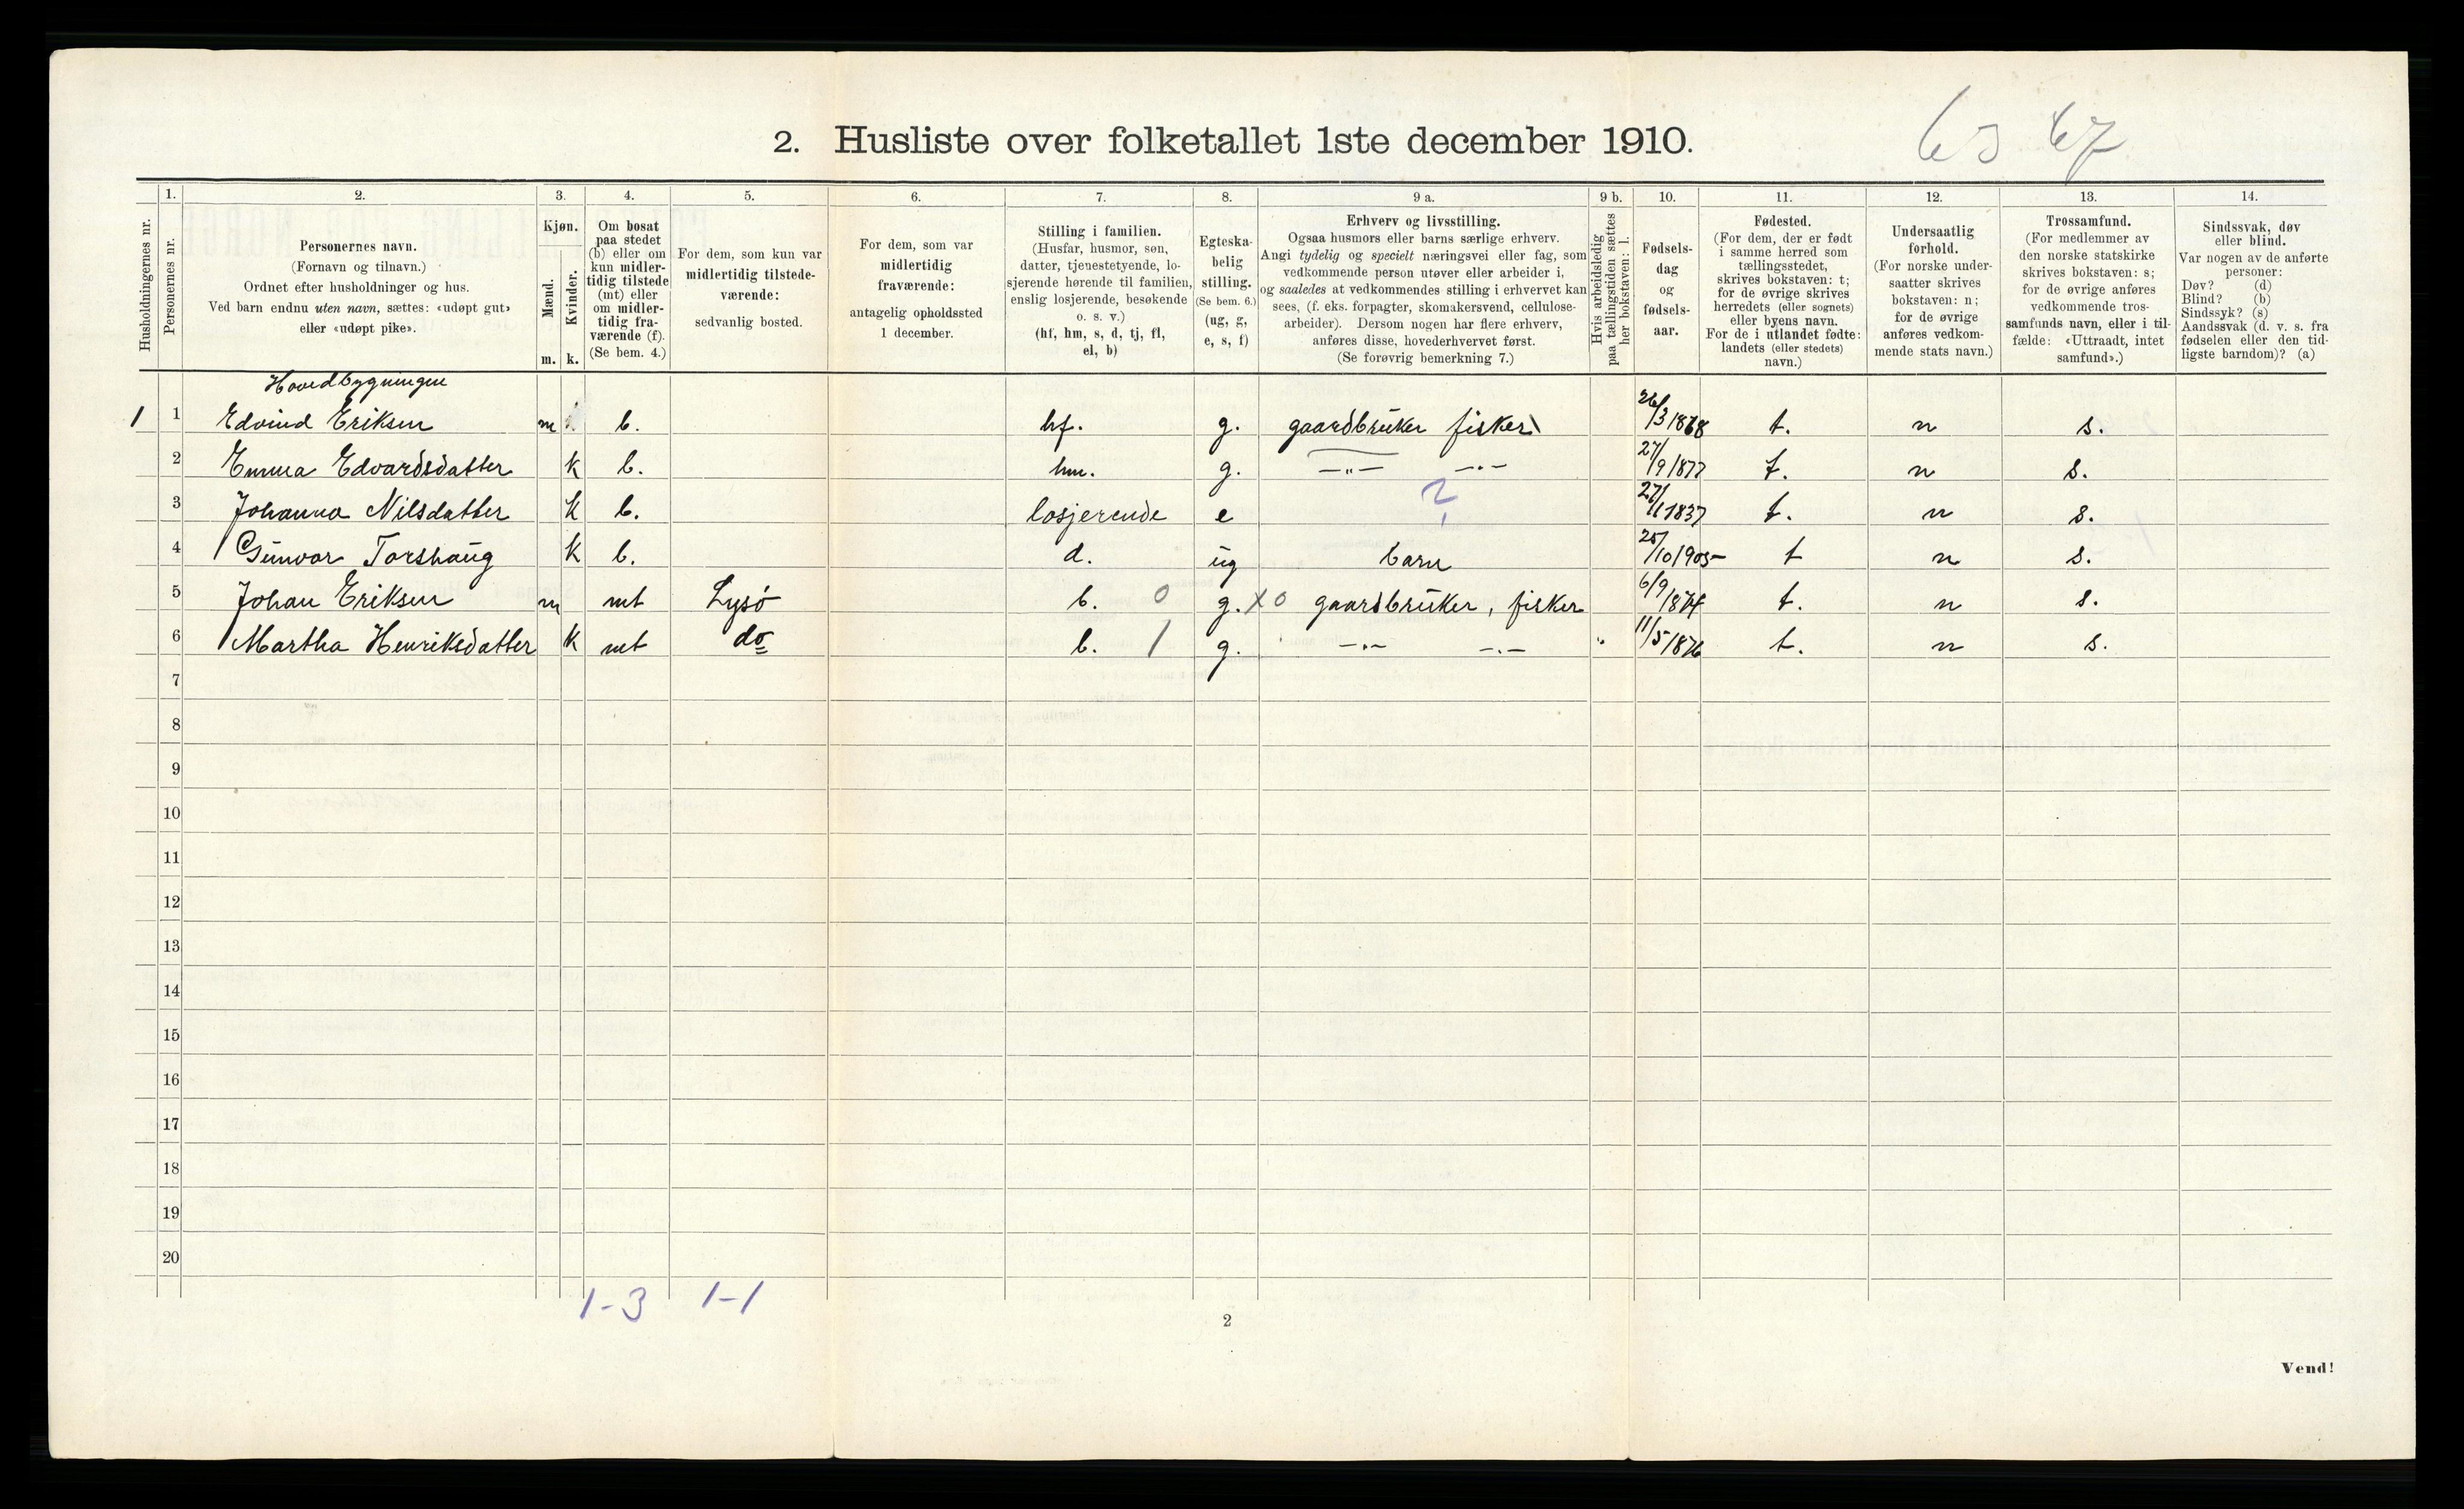 65 67
2. Husliste over folketallet 1ste december 1910.
Husholdningernes nr.
1. Personernes nr.
2. Personernes navn.
(Fornavn og tilnavn.)
Ordnet efter husholdninger og hus.
Ved barn endnu uten navn, sættes: «udøpt gut»
eller «udøpt pike».
3. Kjøn.
Mænd. Kvinder.
m. k.
4. Om bosat
paa stedet
(b) eller om
kun midler-
tidig tilstede
(mt) eller
om midler-
tidig fra-
værende (f).
(Se bem. 4.)
5. For dem, som kun var
midlertidig tilstede-
værende:
sedvanlig bosted.
6. For dem, som var
midlertidig
fraværende:
antagelig opholdssted
1 december.
7. Stilling i familien.
(Husfar, husmor, søn,
datter, tjenestetyende, lo-
sjerende hørende til familien,
enslig losjerende, besøkende
o. s. v.)
(hf, hm, s, d, tj, fl,
el, b)
8. Egteska-
belig
stilling.
(Se bem. 6.)
(ug, g,
e, s, f)
9 a. Erhverv og livsstilling.
Ogsaa husmors eller barns særlige erhverv.
Angi tydelig og specielt næringsvei eller fag, som
vedkommende person utøver eller arbeider i,
og saaledes at vedkommendes stilling i erhvervet kan
sees, (f. eks. forpagter, skomakersvend, cellulose-
arbeider). Dersom nogen har flere erhverv,
anføres disse, hovederhvervet først.
(Se forøvrig bemerkning 7.)
9 b. Hvis arbeidsledig
paa tællingstiden sættes
her bokstaven: l.
10. Fødsels-
dag
og
fødsels-
aar.
11. Fødested.
(For dem, der er født
i samme herred som
tællingsstedet,
skrives bokstaven: t;
for de øvrige skrives
herredets (eller sognets)
eller byens navn.
For de i utlandet fødte:
landets (eller stedets)
navn.)
12. Undersaatlig
forhold.
(For norske under-
saatter skrives
bokstaven: n;
for de øvrige
anføres vedkom-
mende stats navn.)
13. Trossamfund.
(For medlemmer av
den norske statskirke
skrives bokstaven: s;
for de øvrige anføres
vedkommende tros-
samfunds navn, eller i til-
fælde: «Uttraadt, intet
samfund».)
14. Sindssvak, døv
eller blind.
Var nogen av de anførte
personer:
Døv? (d)
Blind? (b)
Sindssyk? (s)
Aandssvak (d. v. s. fra
fødselen eller den tid-
ligste barndom)? (a)
Hovedbygningen
1 1 Edvind Eriksen m b. hf. g. gaardbruker fisker 26/3 1868 t. n s.
2 Emma Edvardsdatter k b. hm. g. —„— —„— 27/9 1877 t. n s.
3 Johanna Nilsdatter k b. losjerende e ? 27/1 1837 t. n s.
4 Gunvor Torshaug k b. d. ug barn 25/10 1905 t n s.
5 Johan Eriksen m mt Lysö b. 0 g. X0 gaardbruker, fisker 6/9 1874 t. n s.
6 Martha Henriksdatter k mt do b. 1 g. —„— —„— 11/5 1876 t. n s.
7
8
9
10
11
12
13
14
15
16
17
18
19
20
1-3 1-1
2
Vend!